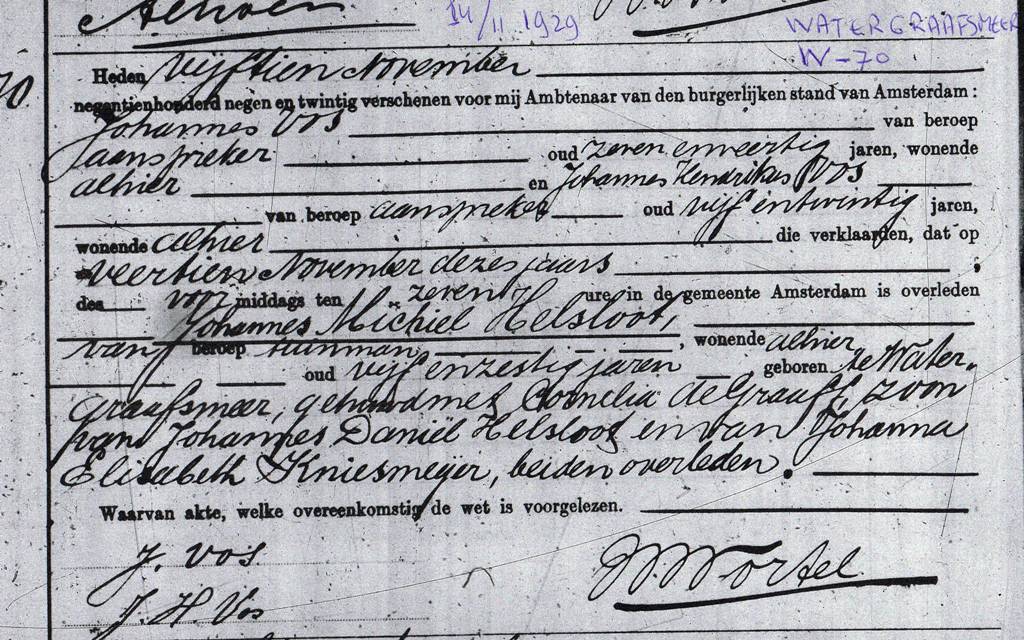 14/11 1929
WATERGRAAFSMEER
W-70
70.
Heden vijftien November
negentienhonderd negen en twintig verschenen voor mij Ambtenaar van den burgerlijken stand van Amsterdam:
Johannes Vos van beroep
aanspreker oud zeven en veertig jaren, wonende
alhier en Johannes Hendrikus Vos
van beroep aanspreker oud vijf en twintig jaren,
wonende alhier die verklaarden, dat op
veertien November dezes jaars ;
des voor middags ten zeven ure in de gemeente Amsterdam is overleden
Johannes Michiel Helsloot,
van beroep tuinman, wonende alhier
oud vijf en zestig jaren geboren te Water-
graafsmeer, gehuwd met Cornelia de Graaff, zoon
van Johannes Daniël Helsloot en van Johanna
Elisabeth Kniesmeyer, beiden overleden.
Waarvan akte, welke overeenkomstig de wet is voorgelezen.
J. Vos.
J. H. Vos
Wortel